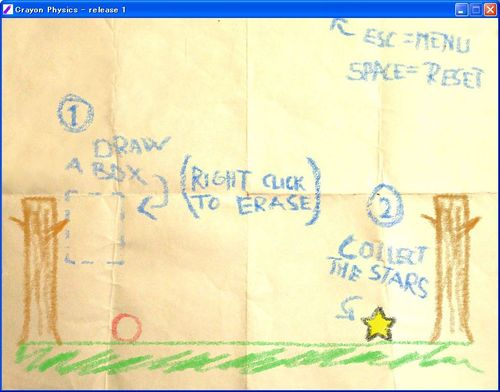 Crayon Physics - release 1
ESC=MENU
SPACE=RESET
1
DRAW
A BOX
(RIGHT CLICK
TO ERASE)
2
COLLECT
THE STARS